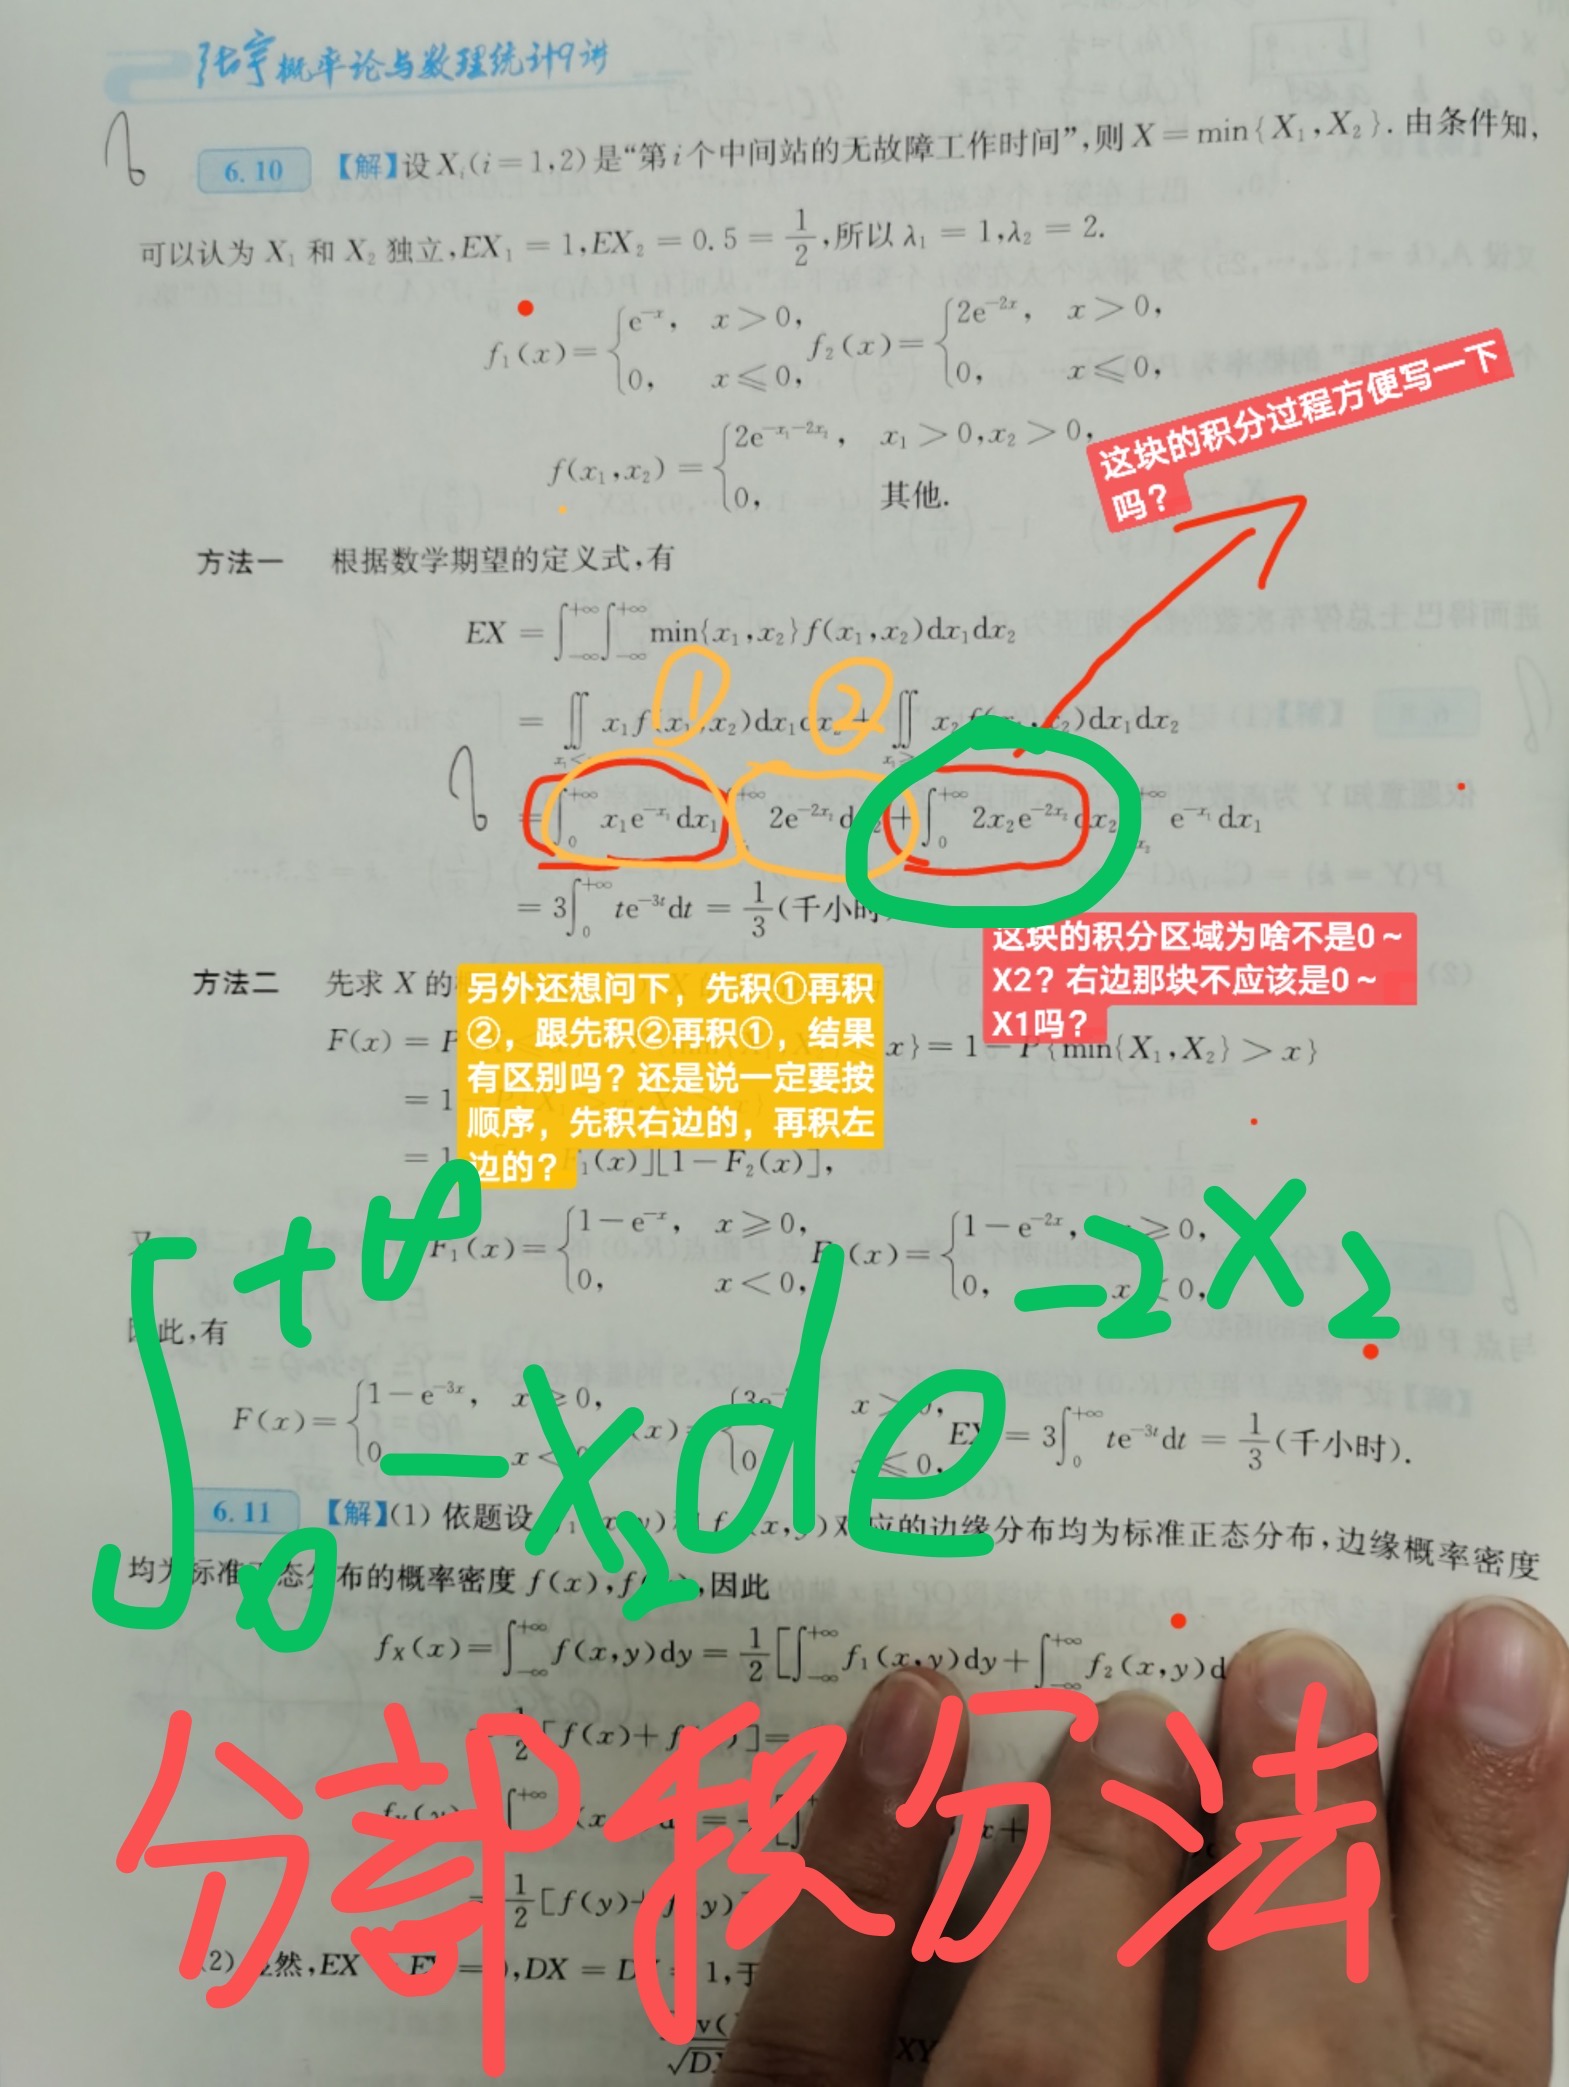 张宇概率论与数理统计9讲
6.10 【解】设 Xᵢ(i=1,2)是“第i个中间站的无故障工作时间”,则 X=min{X₁,X₂}.由条件知,
可以认为 X₁ 和 X₂ 独立,EX₁ = 1,EX₂ = 0.5 = 1/2,所以 λ₁ = 1,λ₂ = 2.
f₁(x)={e⁻ˣ, x>0, 0, x≤0, f₂(x)={2e⁻²ˣ, x>0, 0, x≤0,
这块的积分过程方便写一下
吗?
f(x₁,x₂)={2e^(-x₁-2x₂), x₁>0,x₂>0, 0, 其他.
方法一 根据数学期望的定义式,有
EX = ∫₋∞^+∞ ∫₋∞^+∞ min{x₁,x₂}f(x₁,x₂)dx₁dx₂
① ②
= ∬ x₁f(x₁,x₂)dx₁dx₂ + ∬ x₂f(x₁,x₂)dx₁dx₂
= ∫₀^+∞ x₁e^(-x₁)dx₁ +∞ 2e^(-2x₂) + ∫₀^+∞ 2x₂e^(-2x₂)dx₂ e^(-x₁)dx₁
= 3∫₀^+∞ te^(-3t)dt = 1/3(千小时
这块的积分区域为啥不是0~
X2?右边那块不应该是0~
X1吗?
方法二 先求 X 的
另外还想问下,先积①再积
②,跟先积②再积①,结果
有区别吗?还是说一定要按
顺序,先积右边的,再积左
边的?
F(x) = P x} = 1 - P{min{X₁,X₂} > x}
= 1
= 1 F₁(x)][1-F₂(x)],
F₁(x)={1-e⁻ˣ, x≥0, 0, x<0, (x)={1-e⁻²ˣ, ≥0, 0, x<0,
∫₀^+∞ -x₂de^(-2x₂)
因此,有
F(x)={1-e⁻³ˣ, x≥0, 0, x< (x)= x> 0, ≤0, EX = 3∫₀^+∞ te^(-3t)dt = 1/3(千小时).
6.11 【解】(1) 依题设 对应的边缘分布均为标准正态分布,边缘概率密度
均为标准正态分布的概率密度 f(x),f ,因此
f_X(x)=∫₋∞^+∞ f(x,y)dy = 1/2[∫₋∞^+∞ f₁(x,y)dy+∫₋∞^+∞ f₂(x,y)d
1/2[f(x)+f
分部积分法
1/2[f(y)+ y)
(2) 显然,EX ,DX = D 1,于